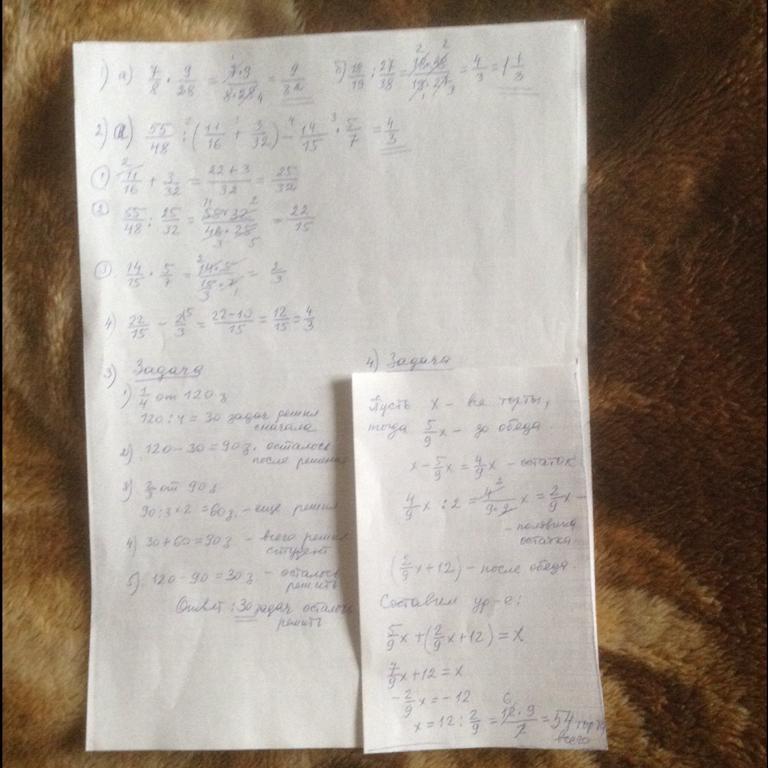 1) а) 7/8 · 9/28 = 7·9/8·28 = 9/32 б) 18/19 : 27/38 = 18·38/19·27 = 4/3 = 1 1/3
2) а) 55/48 : (11/16 + 3/32) - 14/15 · 5/7 = 4/3
1) 11/16 + 3/32 = 22+3/32 = 25/32
2 55/48 : 25/32 = 55·32/48·25 = 22/15
3 14/15 · 5/7 = 14·5/15·7 = 2/3
4) 22/15 - 2/3 = 22-10/15 = 12/15 = 4/3
3) Задача
1) 1/4 от 120 з
120 : 4 = 30 задач решил
сначала
2) 120 - 30 = 90 з. осталось
после решения
3) 2/3 от 90 з
90 : 3 × 2 = 60 з. - еще решил
4) 30 + 60 = 90 з - всего решил
студент
5) 120 - 90 = 30 з. - осталось
решить
Ответ: 30 задач осталось
решить
4) Задача
Пусть x - все торты,
тогда 5/9 x - до обеда.
x - 5/9 x = 4/9 x - остаток
4/9 x : 2 = 4/9·2 x = 2/9 x -
- половина
остатка
(2/9 x + 12) - после обеда.
Составим ур-е:
5/9 x + (2/9 x + 12) = x
7/9 x + 12 = x
- 2/9 x = - 12
x = 12 : 2/9 = 12·9/2 = 54 торта
всего